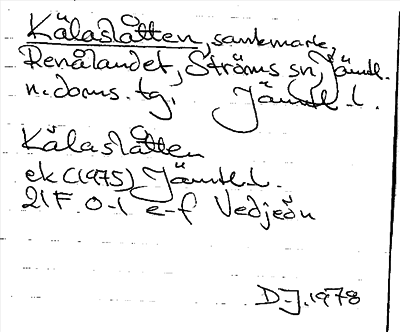 Kälaslåtten, sankmark,
Renålandet, Ströms sn, Jämtl.
n. doms. tg. Jämtl. l.
Kälaslåtten
ek (1975) Jämtl. l.
21F 0-1 e-f Vedjeön
D-J. 1978